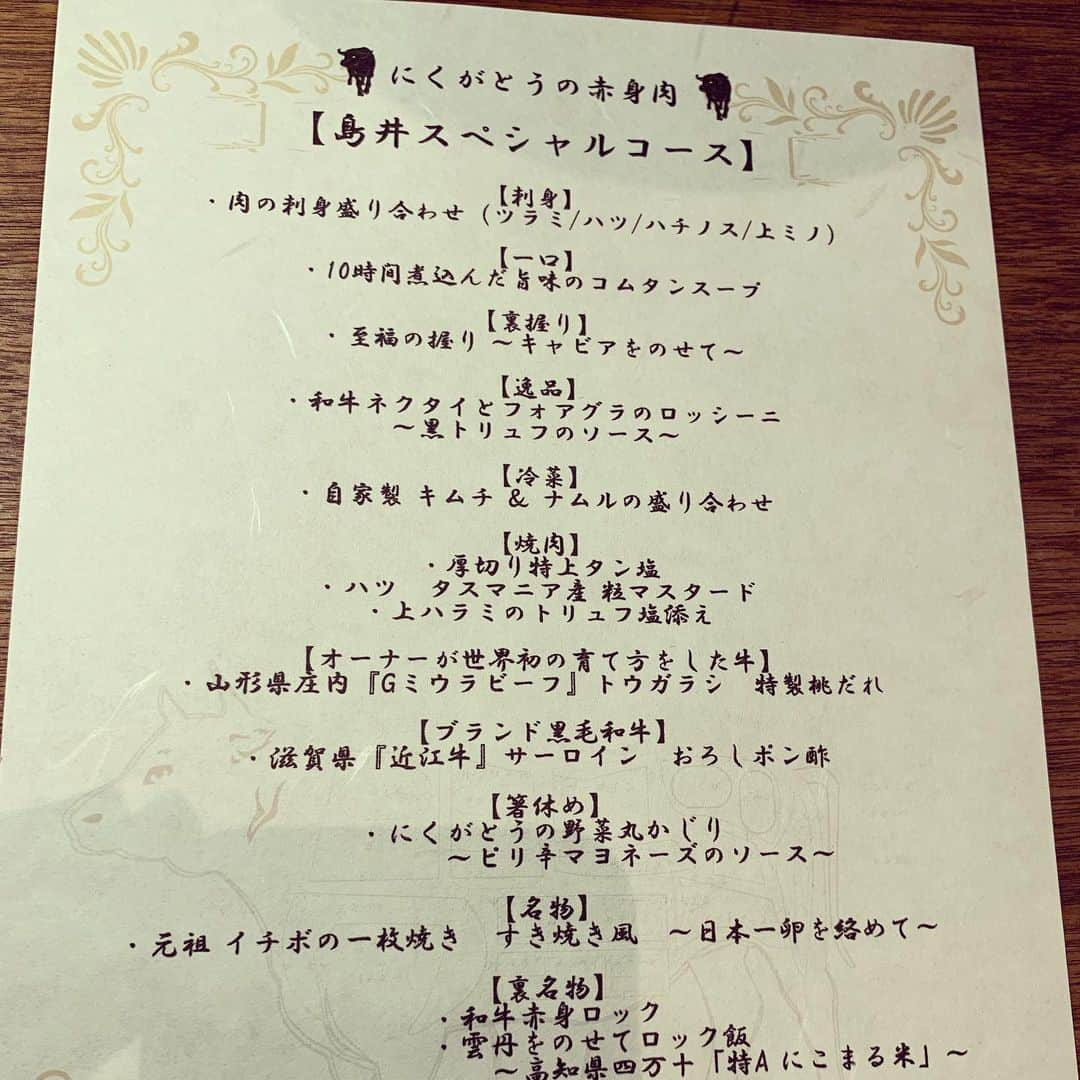 にくがとうの赤身肉
【島井スペシャルコース】
【刺身】
・肉の刺身盛り合わせ（ツラミ/ハツ/ハチノス/上ミノ）
【一口】
・10時間煮込んだ旨味のコムタンスープ
【裏握り】
・至福の握り ～キャビアをのせて～
【逸品】
・和牛ネクタイとフォアグラのロッシーニ
～黒トリュフのソース～
【冷菜】
・自家製 キムチ & ナムルの盛り合わせ
【焼肉】
・厚切り特上タン塩
・ハツ　タスマニア産 粒マスタード
・上ハラミのトリュフ塩添え
【オーナーが世界初の育て方をした牛】
・山形県庄内『Gミウラビーフ』トウガラシ　特製桃だれ
【ブランド黒毛和牛】
・滋賀県『近江牛』サーロイン　おろしポン酢
【箸休め】
・にくがとうの野菜丸かじり
～ピリ辛マヨネーズのソース～
【名物】
・元祖 イチボの一枚焼き　すき焼き風　～日本一卵を絡めて～
【裏名物】
・和牛赤身ロック
・雲丹をのせてロック飯
～高知県四万十「特A にこまる米」～